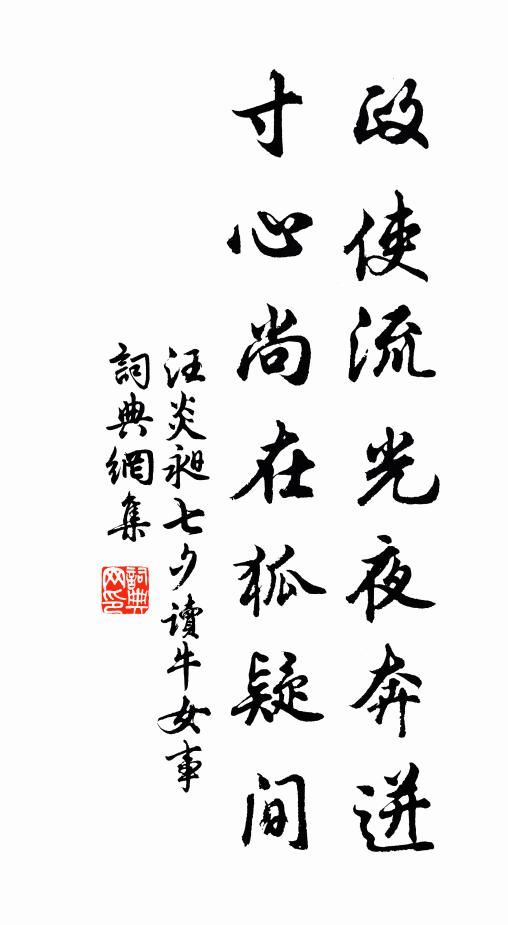 政使流光夜奔迸
寸心尚在狐疑间
汪炎昶七夕讀牛女事
詞典網集
詞典網印